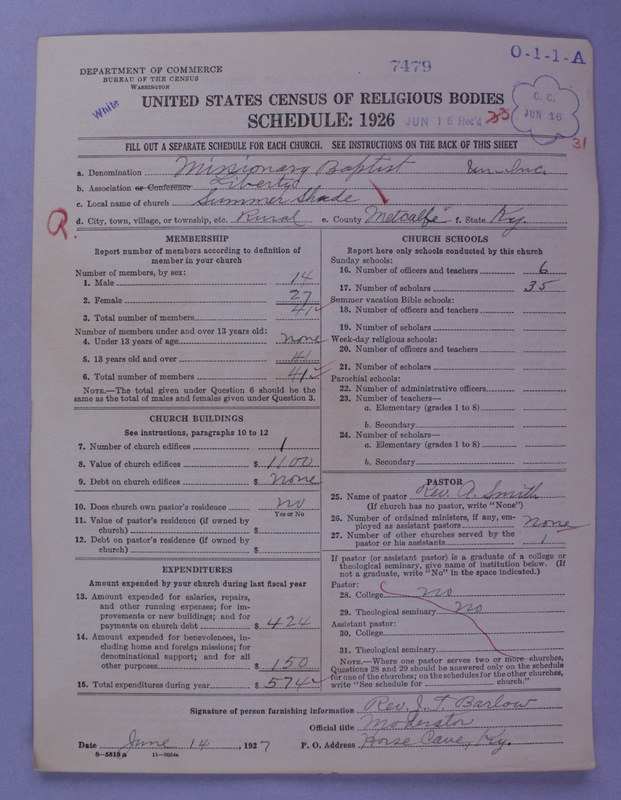 7479
O-1-1-A
DEPARTMENT OF COMMERCE
BUREAU OF THE CENSUS
WASHINGTON
White
UNITED STATES CENSUS OF RELIGIOUS BODIES
SCHEDULE: 1926
JUN 16 Rec'd
C. C.
JUN 16
31
FILL OUT A SEPARATE SCHEDULE FOR EACH CHURCH. SEE INSTRUCTIONS ON THE BACK OF THIS SHEET
a. Denomination Missionary Baptist
b. Association or Conference Liberty
c. Local name of church Summer Shade
d. City, town, village, or township, etc. Rural e. County Metcalfe f. State Ky.
R.
MEMBERSHIP
Report number of members according to definition of
member in your church
Number of members, by sex:
1. Male 14
2. Female 27
3. Total number of members 41
Number of members under and over 13 years old:
4. Under 13 years of age none
5. 13 years old and over 41
6. Total number of members 41
NOTE.—The total given under Question 6 should be the
same as the total of males and females given under Question 3.
CHURCH BUILDINGS
See instructions, paragraphs 10 to 12
7. Number of church edifices 1
8. Value of church edifices $ 1100
9. Debt on church edifices $ none
10. Does church own pastor's residence? no
Yes or No
11. Value of pastor's residence (if owned by
church) $
12. Debt on pastor's residence (if owned by
church) $
EXPENDITURES
Amount expended by your church during last fiscal year
13. Amount expended for salaries, repairs,
and other running expenses; for im-
provements or new buildings; and for
payments on church debt $ 424
14. Amount expended for benevolences, in-
cluding home and foreign missions; for
denominational support; and for all
other purposes $ 150
15. Total expenditures during year $ 574
CHURCH SCHOOLS
Report here only schools conducted by this church
Sunday schools:
16. Number of officers and teachers 6
17. Number of scholars 35
Summer vacation Bible schools:
18. Number of officers and teachers
19. Number of scholars
Week-day religious schools:
20. Number of officers and teachers
21. Number of scholars
Parochial schools:
22. Number of administrative officers
23. Number of teachers—
a. Elementary (grades 1 to 8)
b. Secondary
24. Number of scholars—
a. Elementary (grades 1 to 8)
b. Secondary
PASTOR
25. Name of pastor Rev. A. Smith
(If church has no pastor, write "None")
26. Number of ordained ministers, if any, em-
ployed as assistant pastors None
27. Number of other churches served by the
pastor or his assistants 1
If pastor (or assistant pastor) is a graduate of a college or
theological seminary, give name of institution below. (If
not a graduate, write "No" in the space indicated.)
Pastor:
28. College no
29. Theological seminary no
Assistant pastor:
30. College
31. Theological seminary
NOTE.—Where one pastor serves two or more churches,
Questions 28 and 29 should be answered only on the schedule
for one of the churches; on the schedules for the other churches,
write "See schedule for church."
Signature of person furnishing information Rev. J. T. Barlow
Official title Moderator
Date June 14, 1927 P. O. Address Horse Cave, Ky.